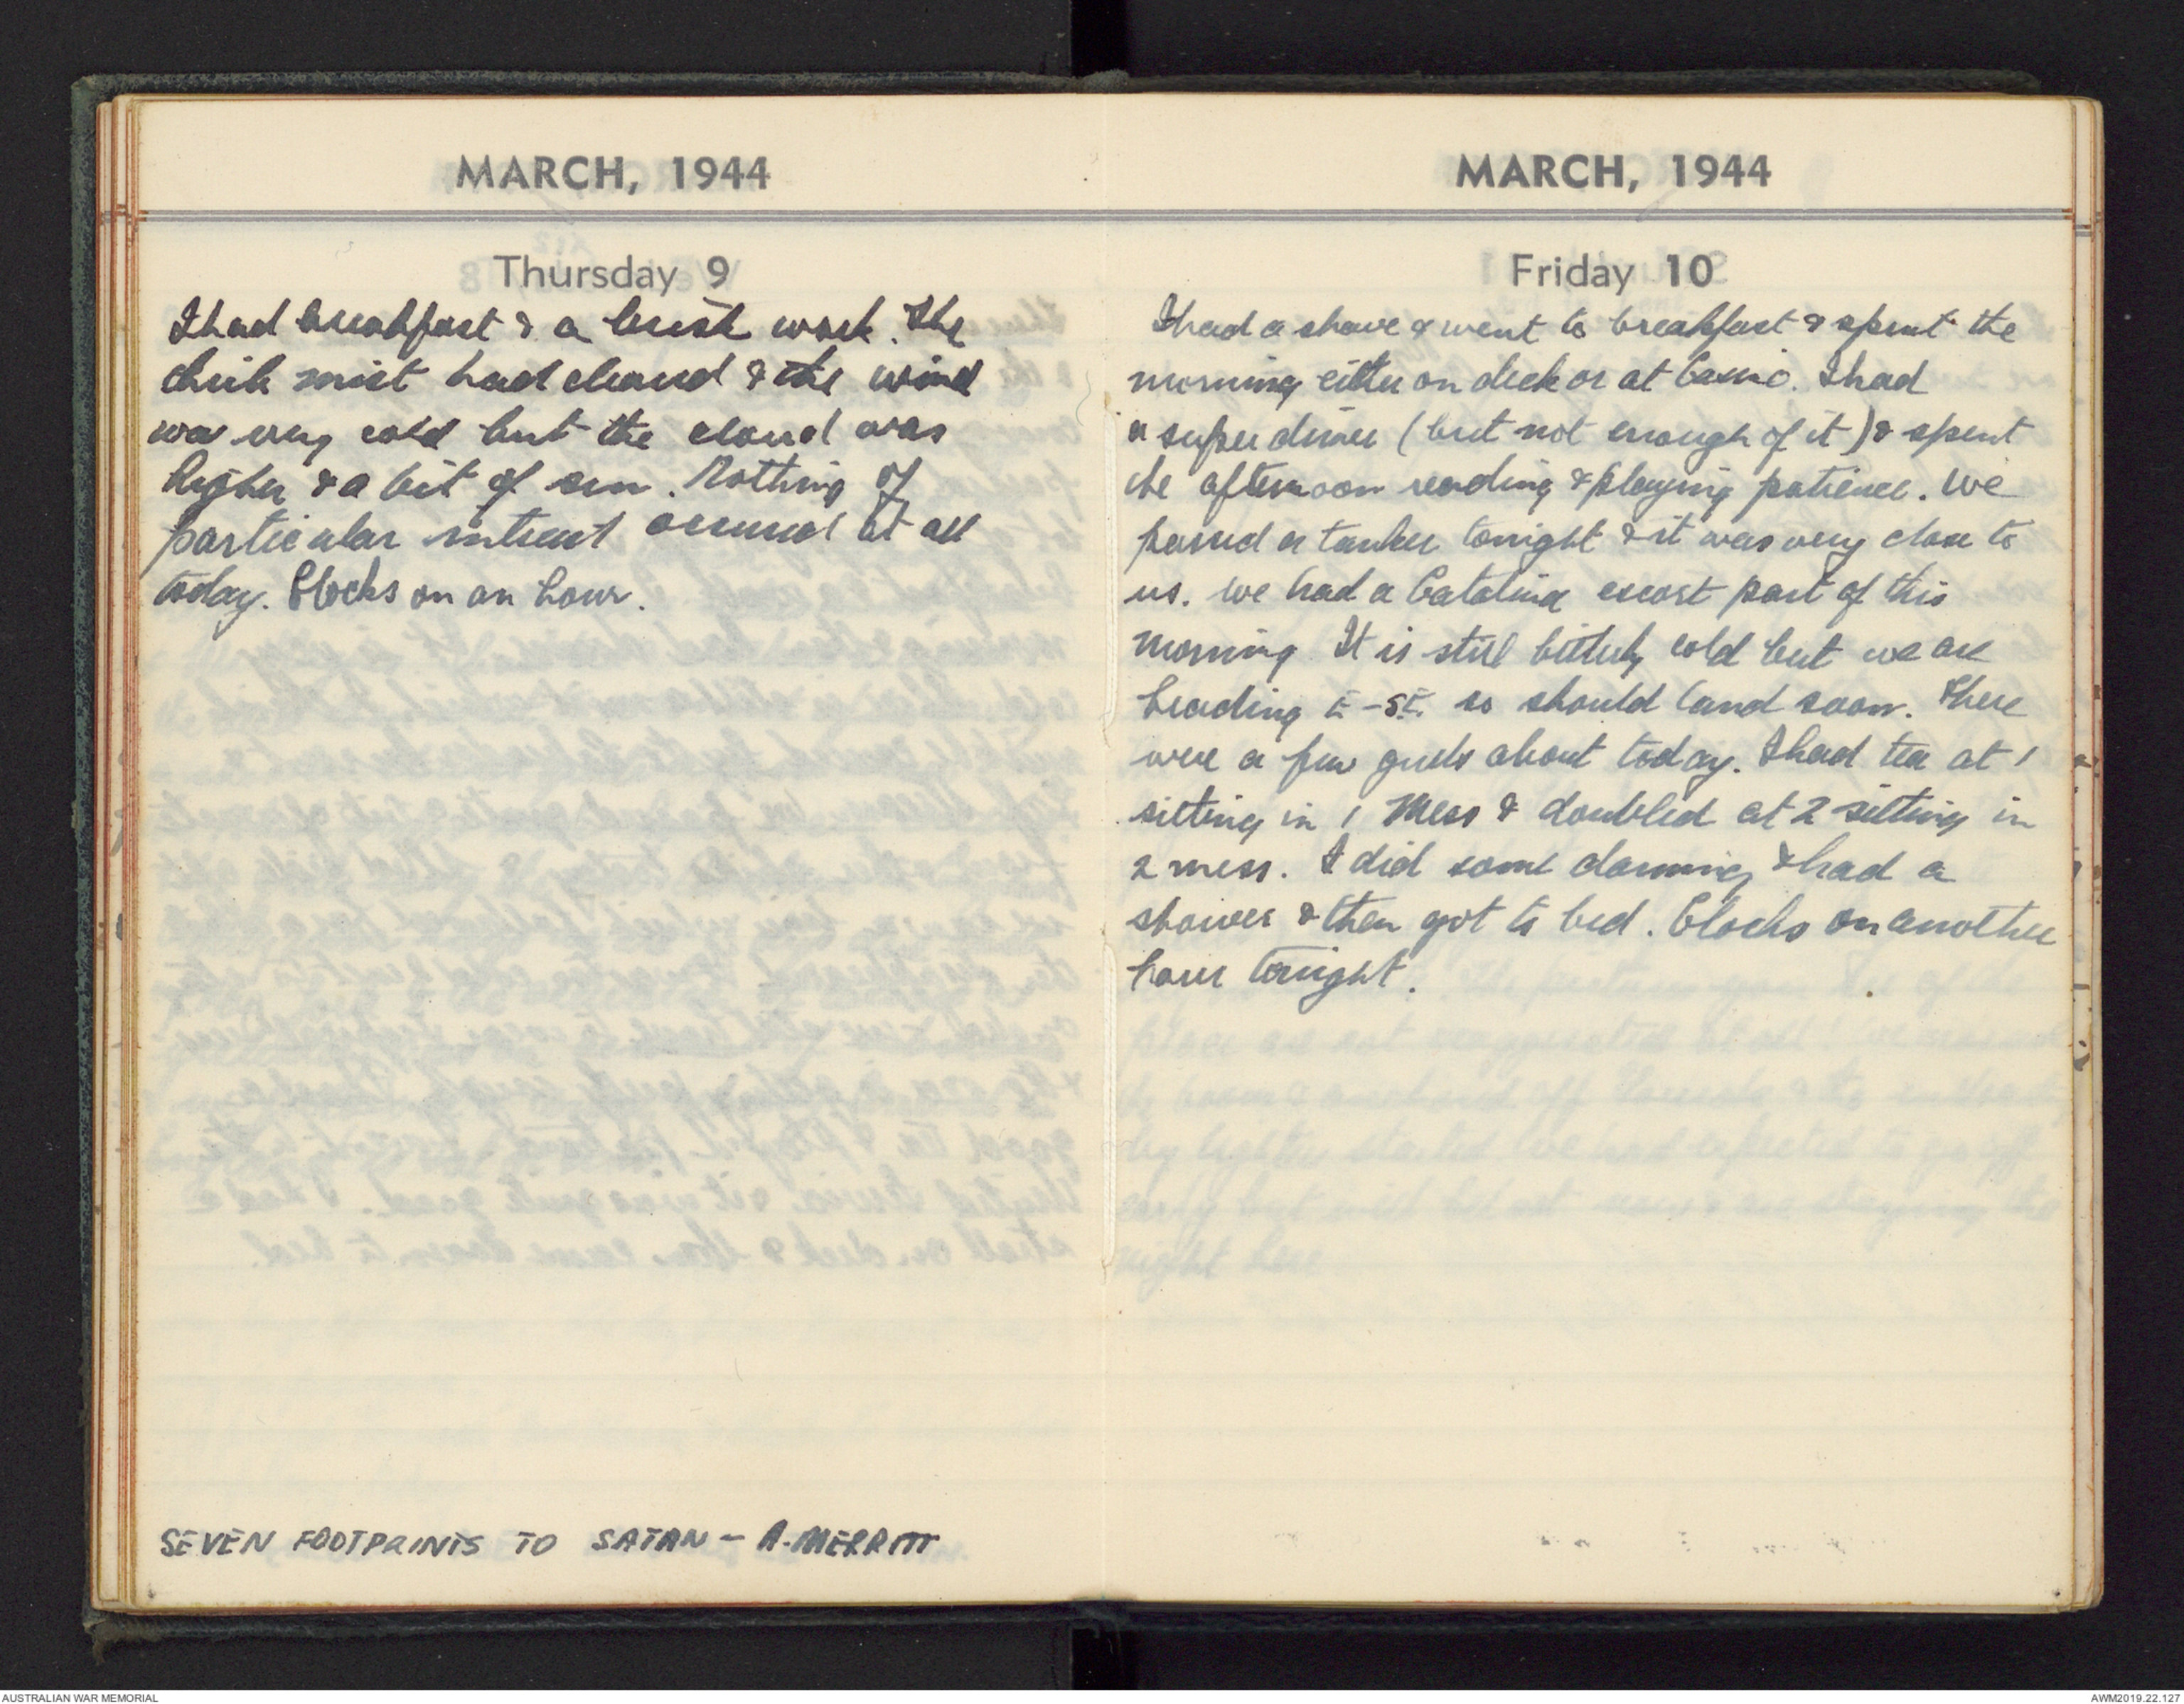 MARCH, 1944
Thursday 9
I had breakfast & a brisk walk. The
thick mist had cleared & the wind
was very cold but the cloud was
higher & a bit of sun. Nothing of
particular interest occurred at all
today. Clocks on an hour.
SEVEN FOOTPRINTS TO SATAN - A. MERRITT
MARCH, 1944
Friday 10
I had a shave & went to breakfast & spent the
morning either on deck or at Casino. I had
a super dinner (but not enough of it) & spent
the afternoon reading & playing patience. We
passed a tanker tonight & it was very close to
us. We had a Catalina escort part of this
morning. It is still bitterly cold but we are
heading E-SE. so should land soon. There
were a few gulls about today. I had tea at 1
sitting in 1 Mess & doubled at 2 sitting in
2 mess. I did some darning & had a
shower & then got to bed. Clocks on another
hour tonight.
AUSTRALIAN WAR MEMORIAL
AWM2019.22.127